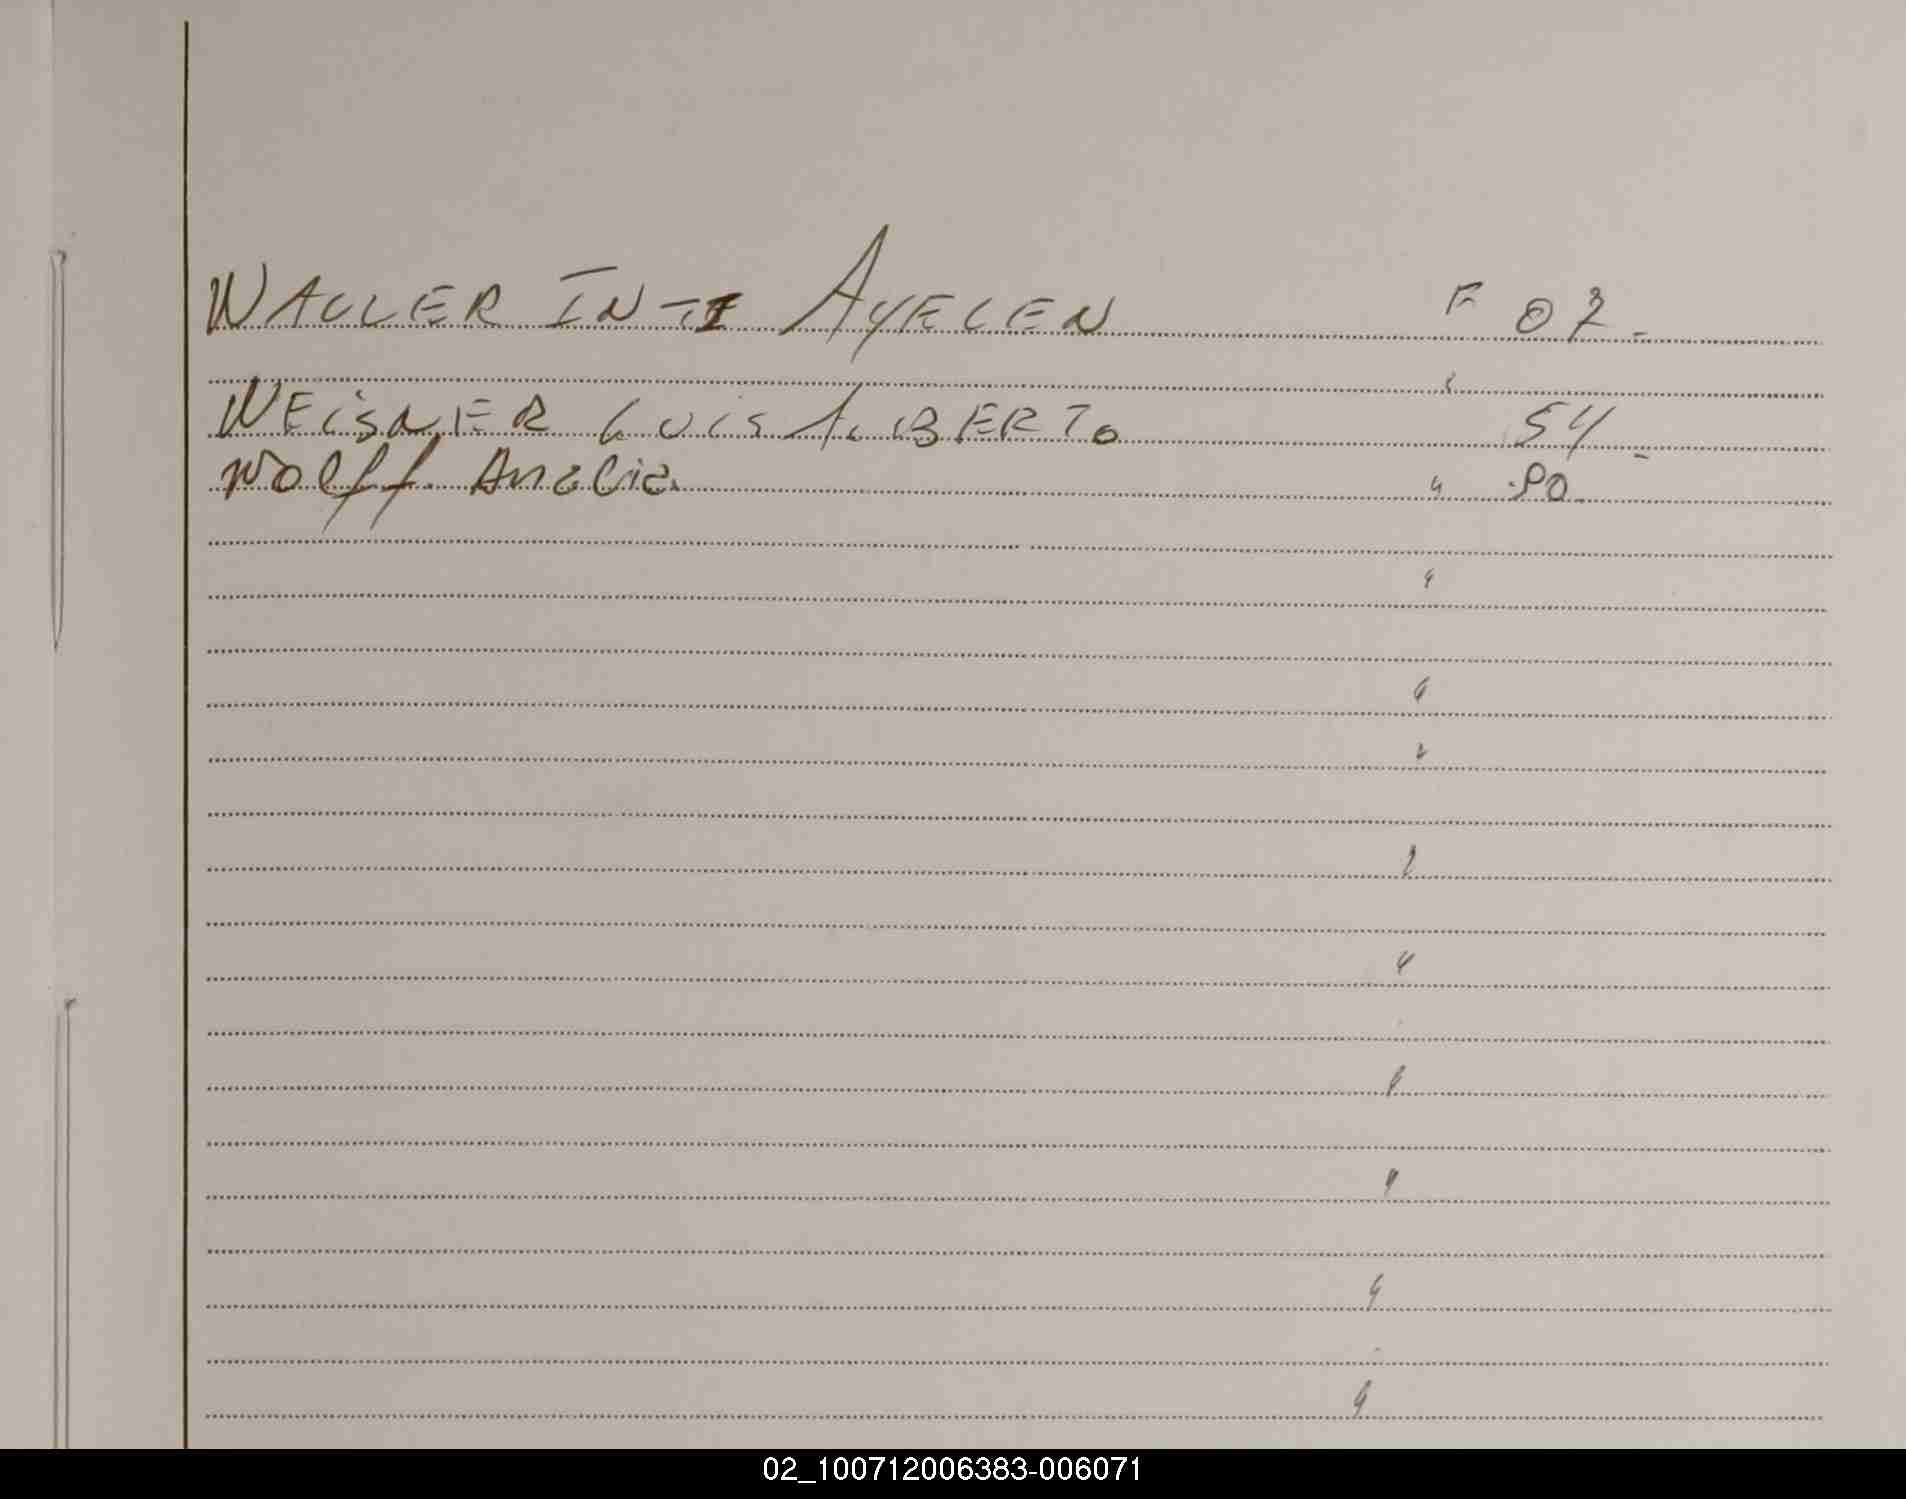 WALLER INTI AYELEN F 07.
WEISNER LUIS ALBERTO 54
Wolff Analia " 80
02_100712006383-006071